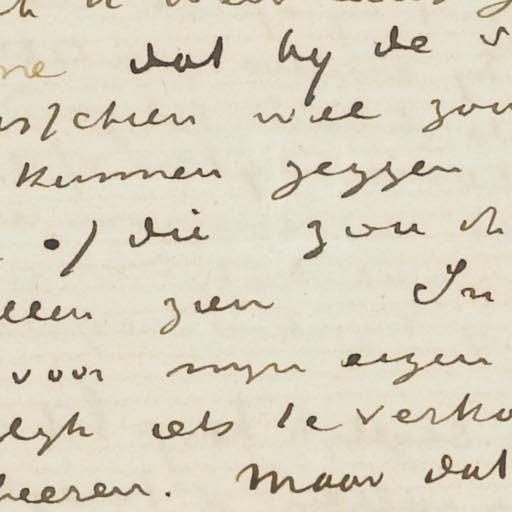 dat hy de
misschien wel zou
kunnen zeggen
.) die zou ik
willen zien In
voor myn eigen
als te verko
heeren. Maar dat